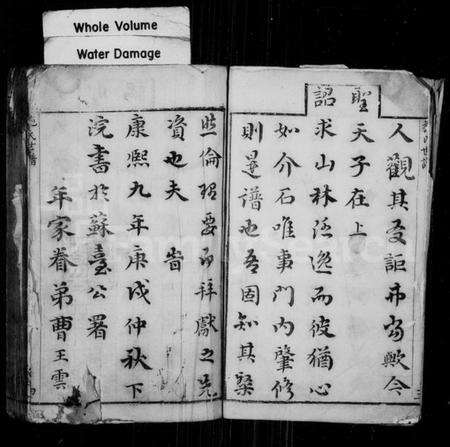 Whole Volume
Water Damage
人觀其友詎弗寄歟今
聖
天子在上
詔
求山林隱逸而彼猶心
如介石唯事門內肇修
則是譜也吾固知其槩
照倫理要而拜獻之先
資也夫 旹
康熙九年庚戌仲秋下
浣書於蘇臺公署
年家眷弟曹王雲